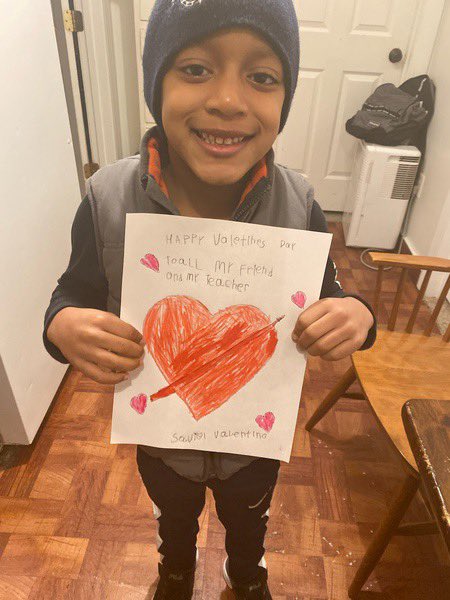 HAPPY Valetines Day
to all my Friend
and my Teacher
Valentino